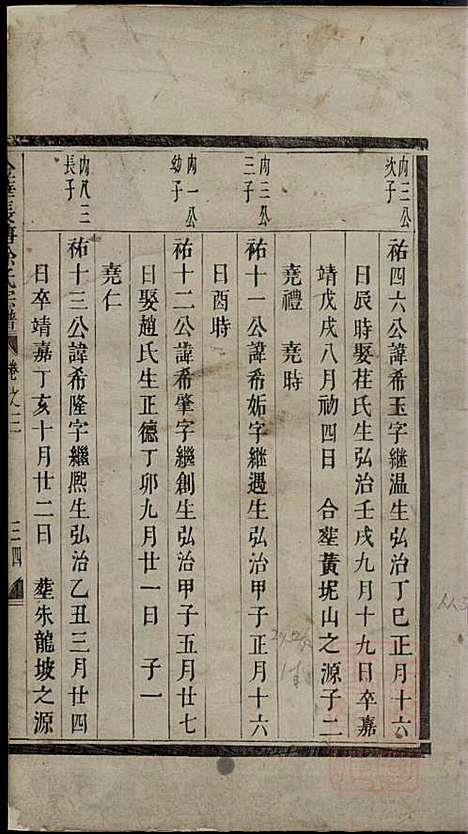 內三公次子
祐四六公諱希玉字継温生弘治丁巳正月十六
日辰時娶荘氏生弘治壬戌九月十九日卒嘉
靖戊戌八月初四日 合塟黃坭山之源子二
堯禮 堯時
內三公三子
祐十一公諱希姤字継遇生弘治甲子正月十六
日酉時
內一公幼子
祐十二公諱希肇字繼創生弘治甲子五月廿七
日娶趙氏生正德丁卯九月廿一日 子一
堯仁
內八三長子
祐十三公諱希隆字繼熈生弘治乙丑三月廿四
日卒靖嘉丁亥十月廿二日 塟朱龍坡之源
氏宗譜 卷之二 三四